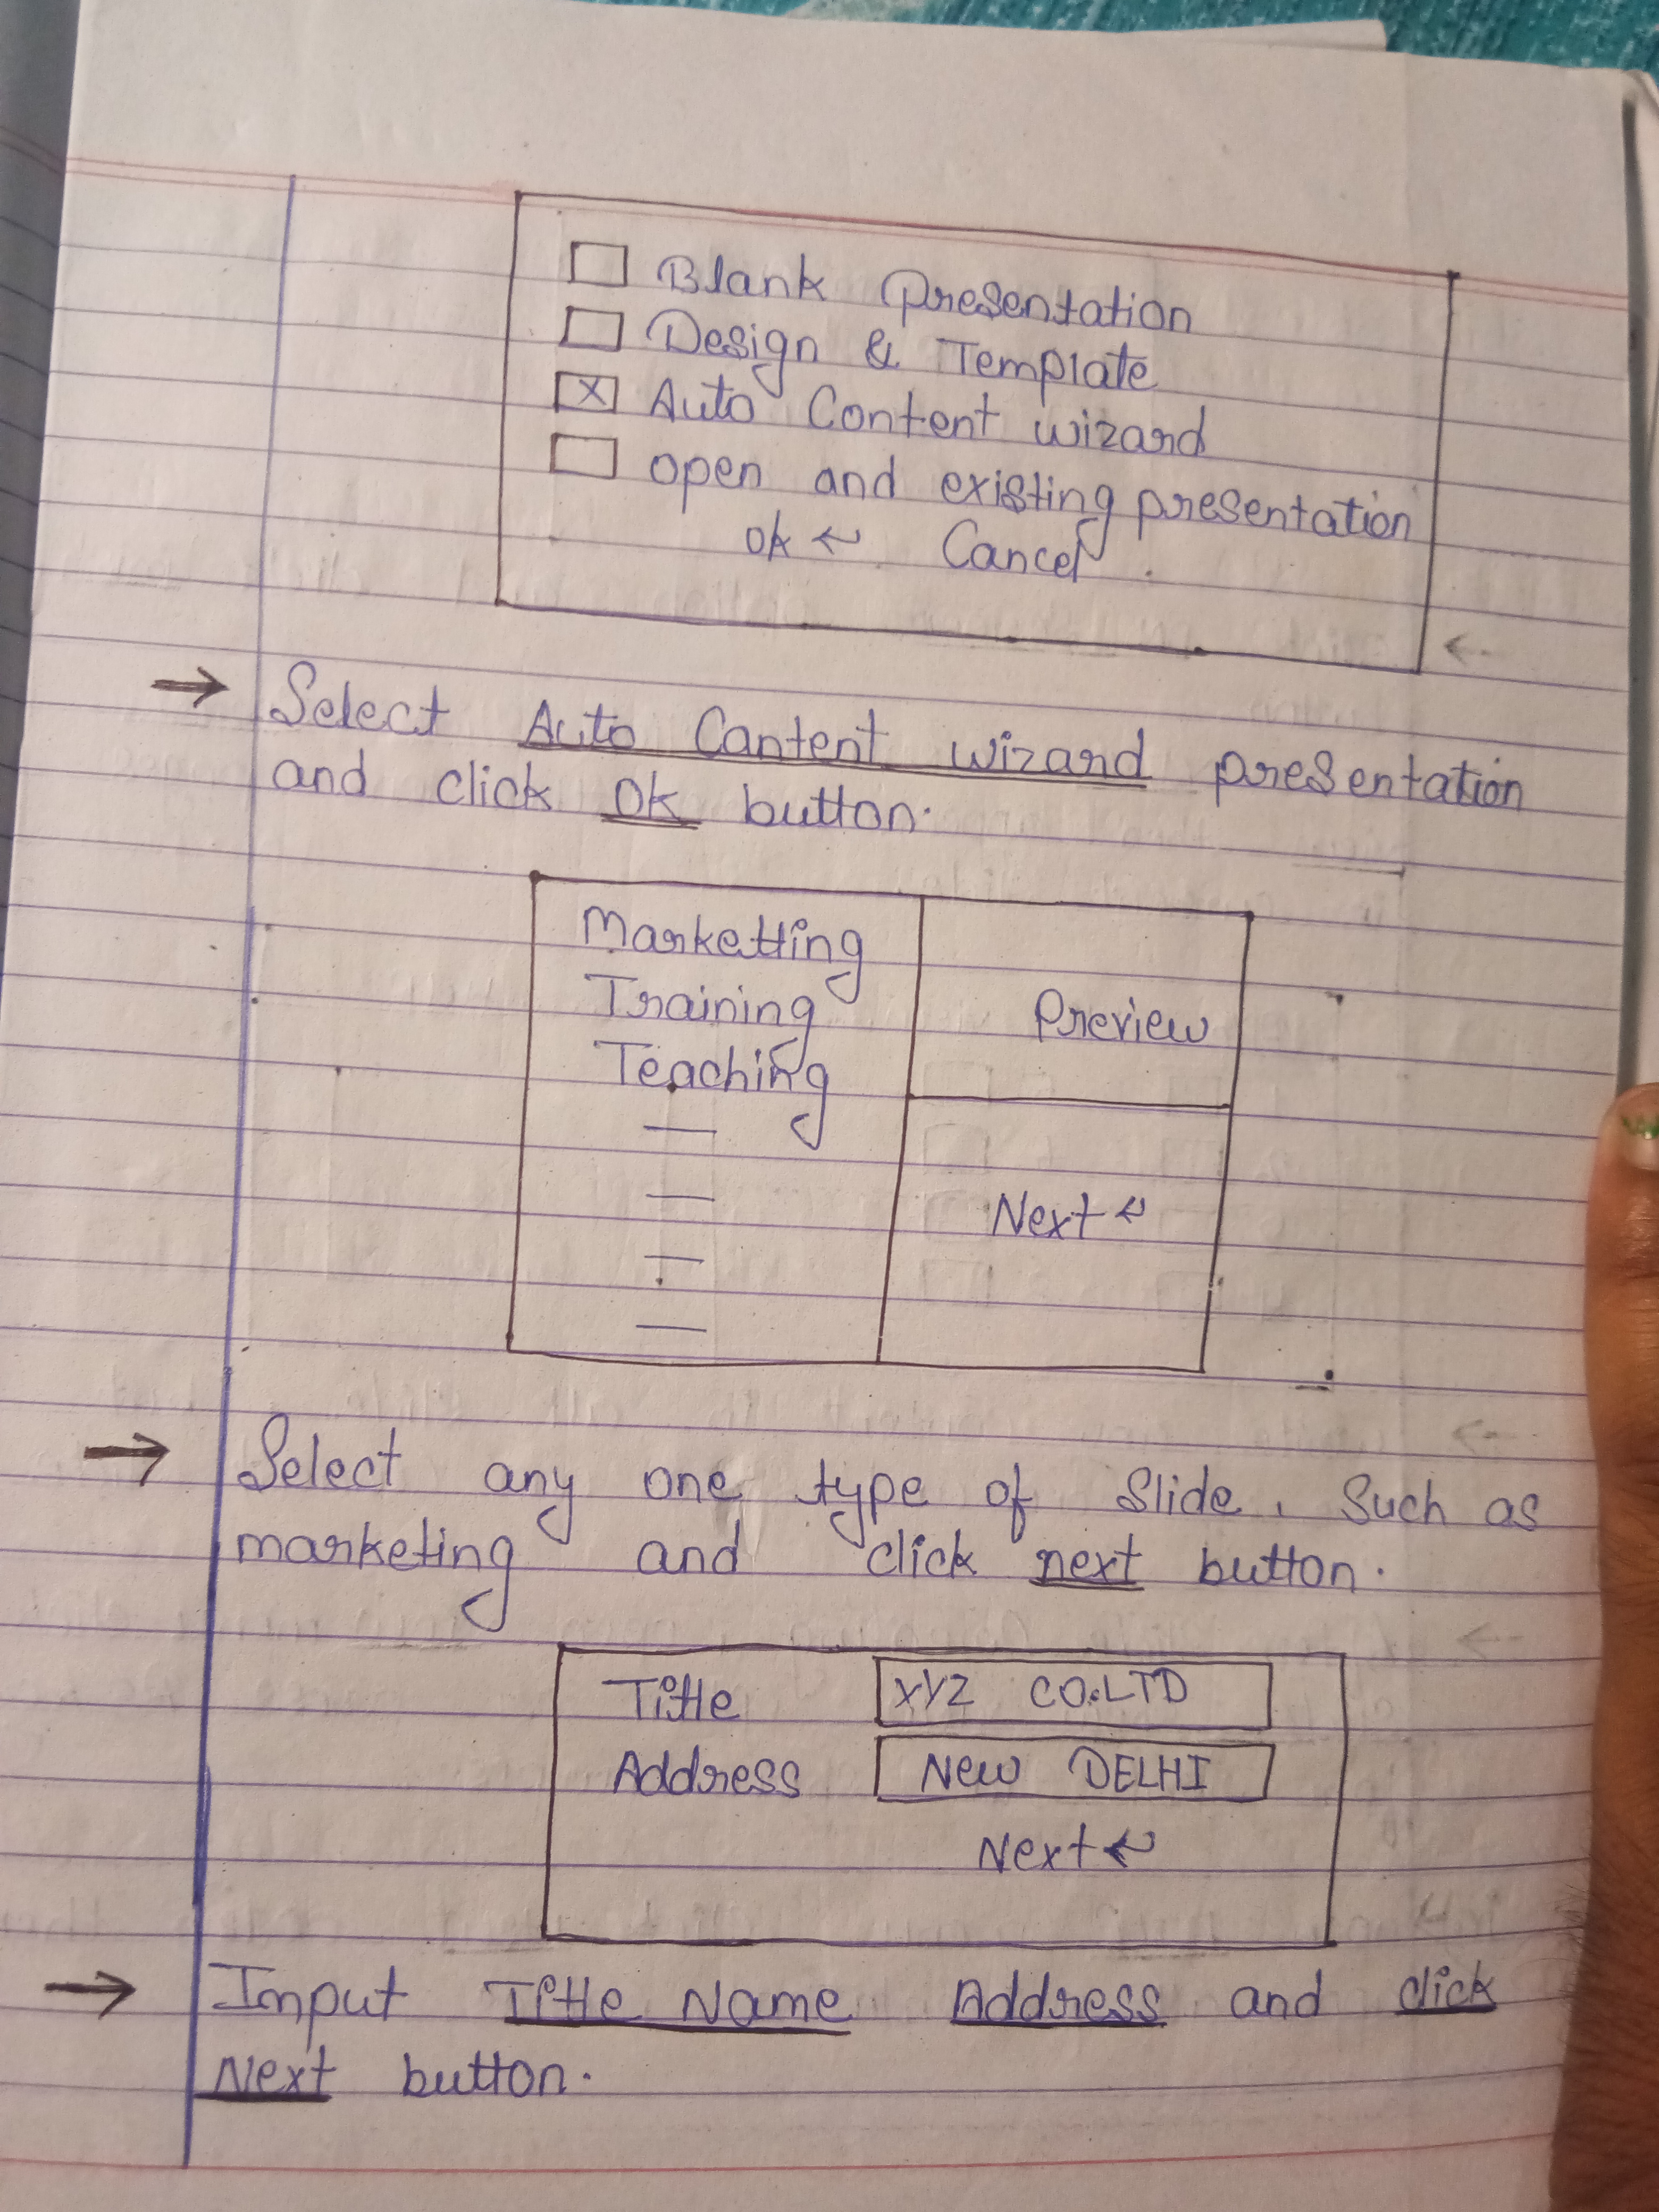 Blank Presentation
Design & Template
X Auto Content wizard
open and existing presentation
ok ↵ Cancel
→ Select Auto Cantent wizard presentation
and click OK button.
Marketting
Training
Teaching
Preview
Next ↵
→ Select any one type of Slide, Such as
marketing and click next button.
Title XYZ CO.LTD
Address New DELHI
Next ↵
→ Input Title Name Address and click
Next button.